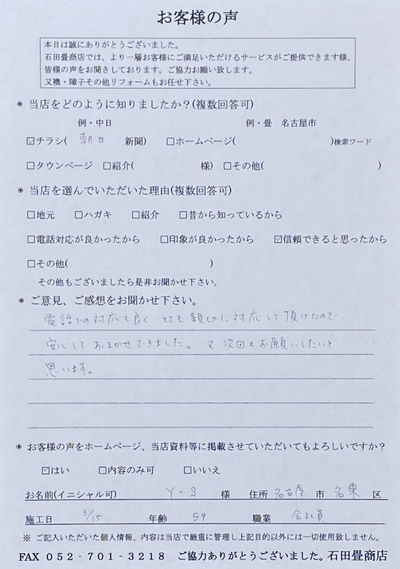 お客様の声
本日は誠にありがとうございました。
石田畳商店では、より一層お客様にご満足いただけるサービスがご提供できます様、
皆様の声をお聞きしております。ご協力お願い致します。
又襖・障子その他リフォームもお任せ下さい。
※ 当店をどのように知りましたか？(複数回答可)
例・中日 例・畳 名古屋市
☑チラシ( 朝日 新聞) □ホームページ( )検索ワード
□タウンページ □紹介( 様) □その他( )
※ 当店を選んでいただいた理由(複数回答可)
□地元 □ハガキ □紹介 □昔から知っているから
□電話対応が良かったから □印象が良かったから ☑信頼できると思ったから
□その他( )
その他もございましたら是非お聞かせ下さい。
※ ご意見、ご感想をお聞かせ下さい。
電話での対応も良く とても親切に対応して頂けたので
安心しておまかせできました。 又、次回もお願いしたいと
思います。
※ お客様の声をホームページ、当店資料等に掲載させていただいてもよろしいですか？
☑はい □内容のみ可 □いいえ
お名前(イニシャル可) Y・S 様 住所 名古屋 市 名東 区
施工日 3/15 年齢 59 職業 会社員
※ ご記入いただいた個人情報、内容は当店で厳重に管理し上記目的以外には一切使用致しません。
FAX 052-701-3218 ご協力ありがとうございました。石田畳商店